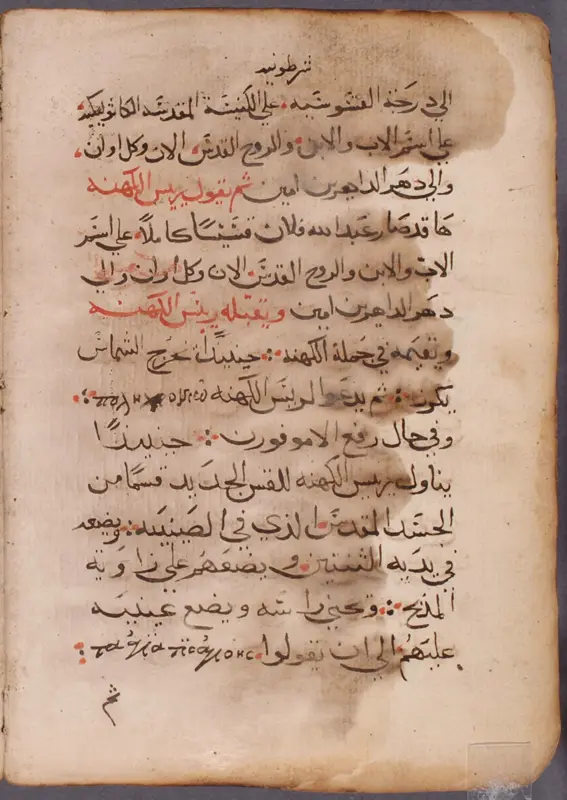 شرطونيه
الي درجة القسوسيه. علي الكنيسة المقدسه الكاثوليكيه
علي اسم الاب والابن. والروح القدس الان وكل اوان.
والي دهر الداهرين امين ثم يقول ريس الكهنه
ها قد صار عبد الله فلان قسيسًا كاملًا. علي اسم
الاب والابن والروح القدس الان وكل اوان والي
دهر الداهرين امين ويقبله ريس الكهنه
ويقيمه في جملة الكهنه: حينيذًا يخرج الشماس
يكرز: ثم يدعوا لريس الكهنه
وفي حال رفع الاموفورن: حينيذًا
يناول ريس الكهنه للقس الجديد قسمًا من
الجسد المقدس الذي في الصينيه: ويضعه
في يديه الثنتين ويضعهم علي زاوية
المذبح: ويحني راسه ويضع عينيه
عليهم الي ان يقولوا. τα ἁγια τοις ἁγιοις: